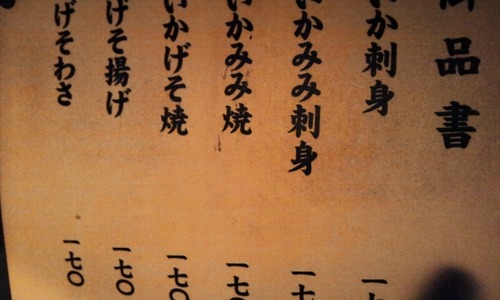 品書
か刺身
かみみ刺身
一七
かみみ焼
一七〇
かげそ焼
一七〇
げそ揚げ
一七〇
げそわさ
一七〇